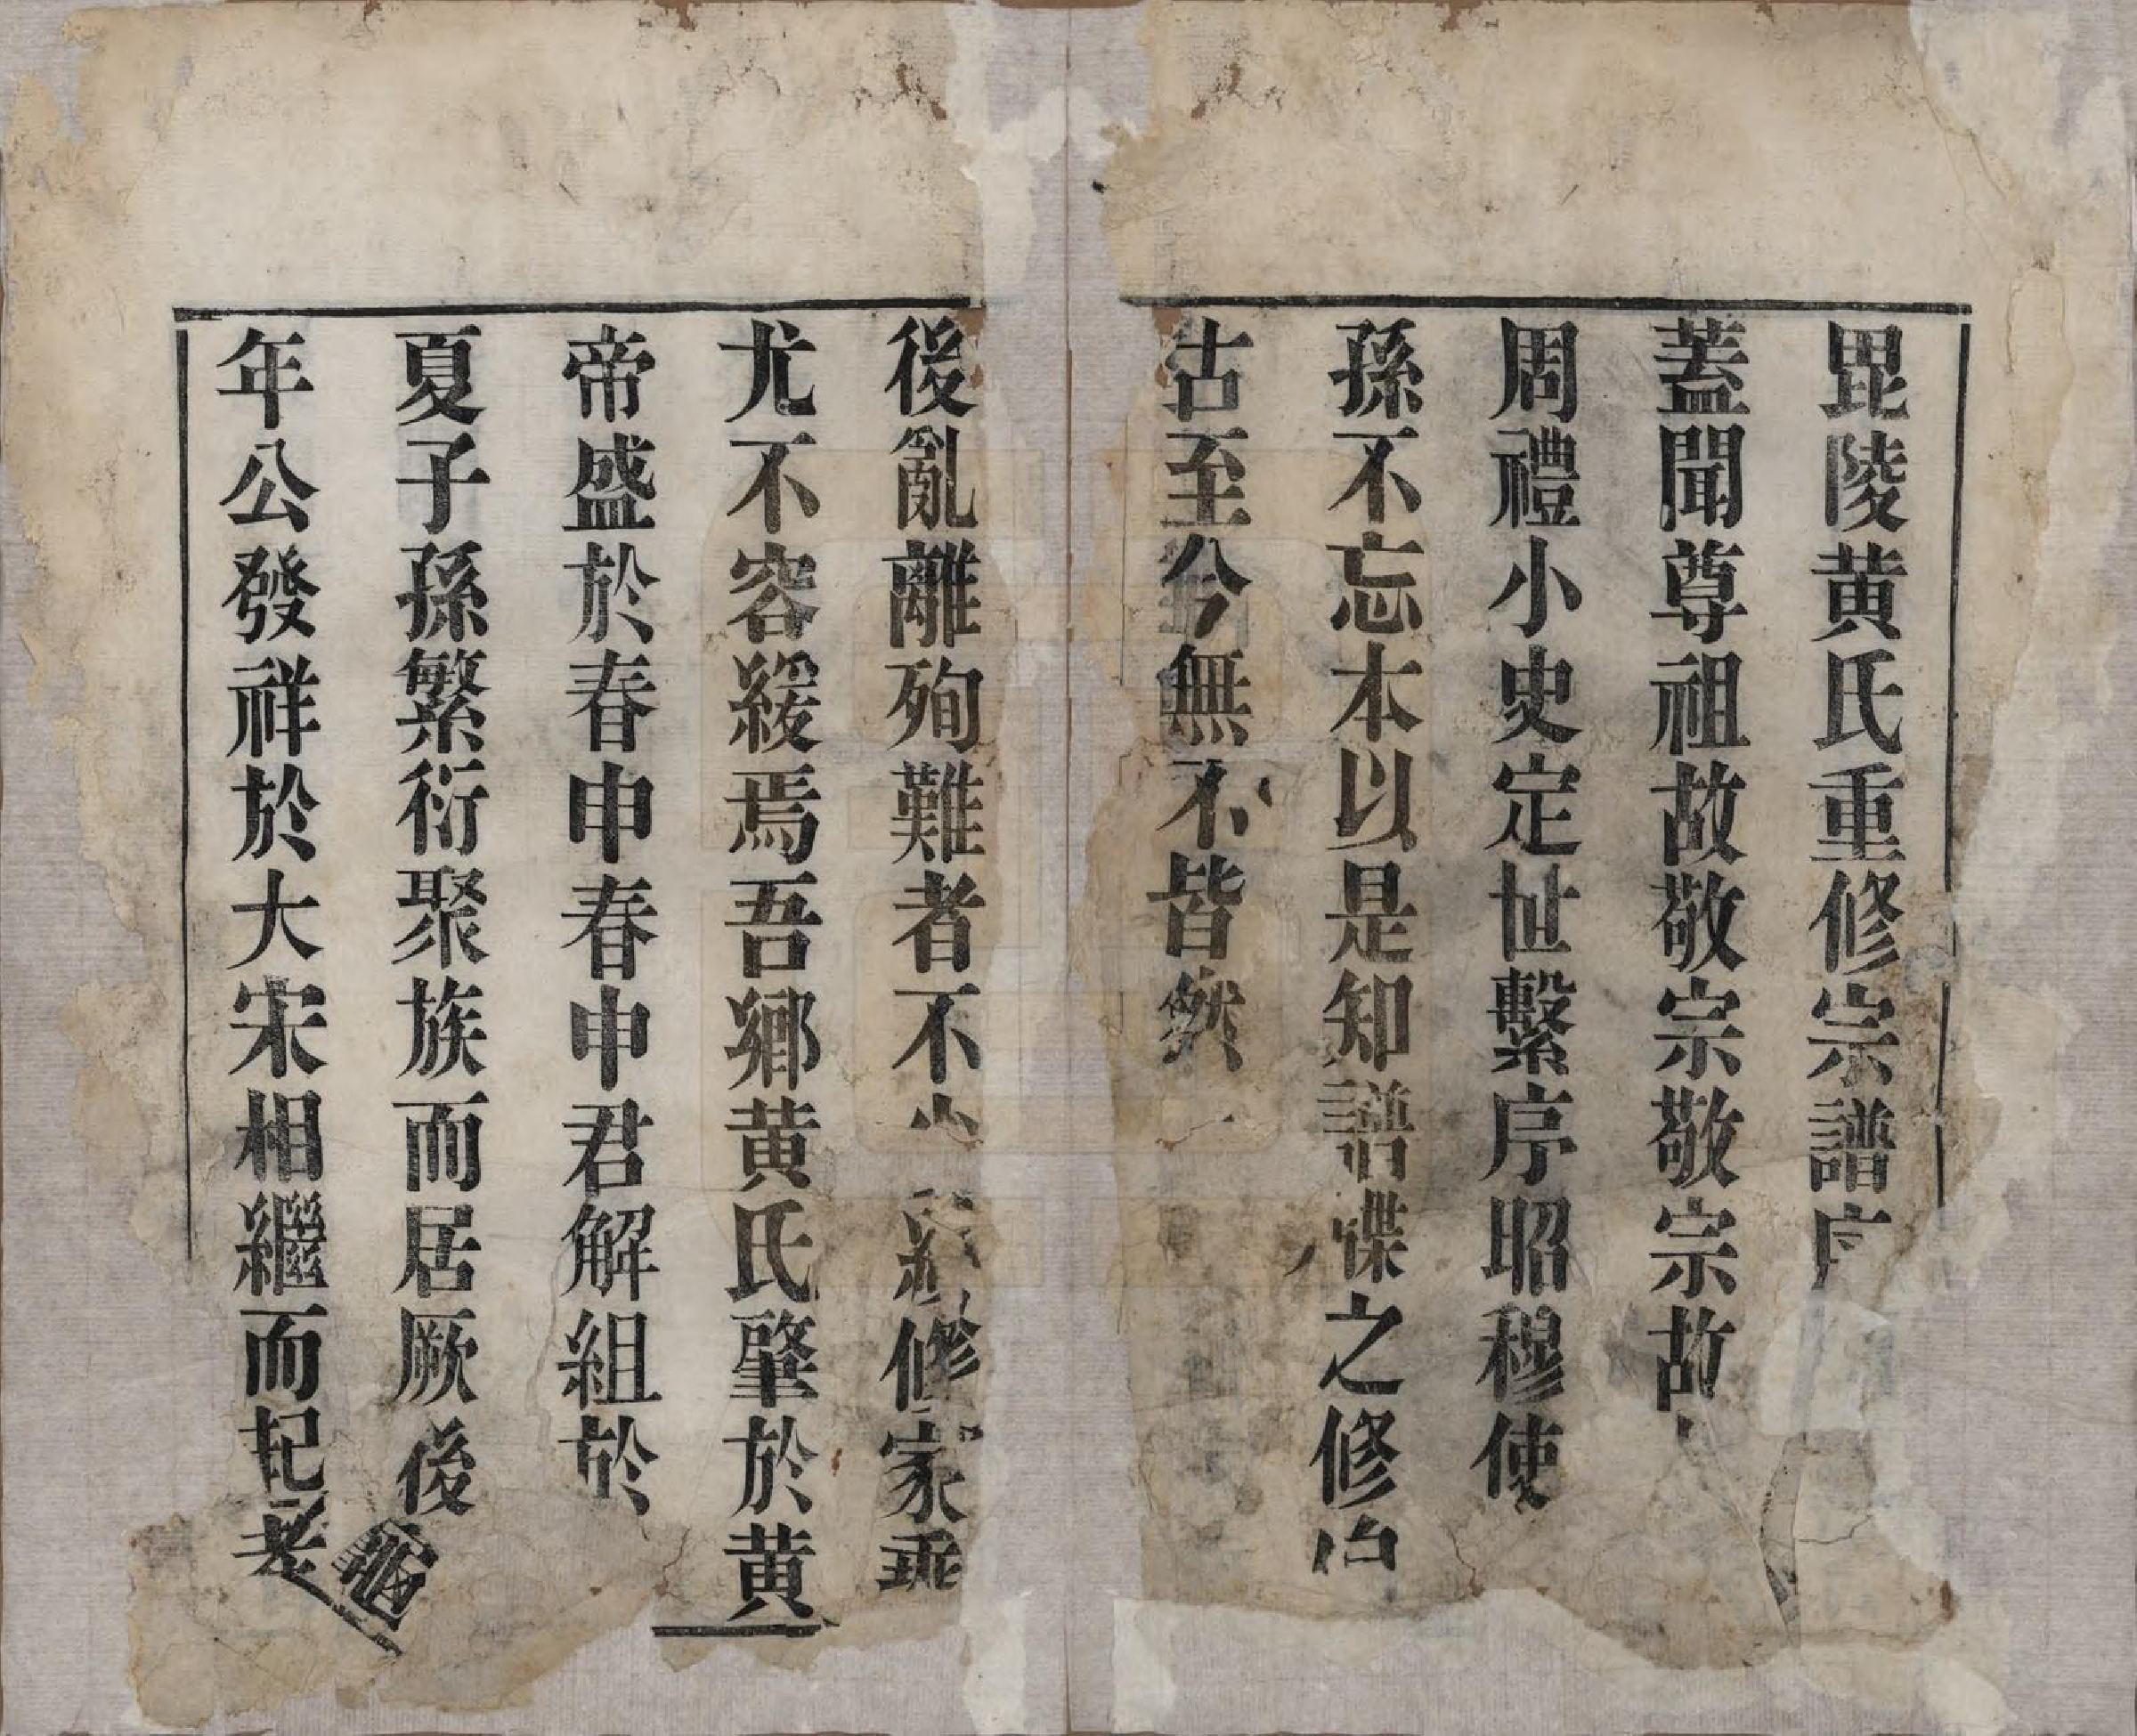 毘陵黄氏重修宗譜序
蓋聞尊祖故敬宗敬宗故
周禮小史定世繫序昭穆使
孫不忘本以是知譜牒之修自
古至今無不皆然
後亂離殉難者不少 修家乘
尤不容緩焉吾鄉黄氏肇於黄
帝盛於春申春申君解組於
夏子孫繁衍聚族而居厥後龜
年公發祥於大宋相繼而起者